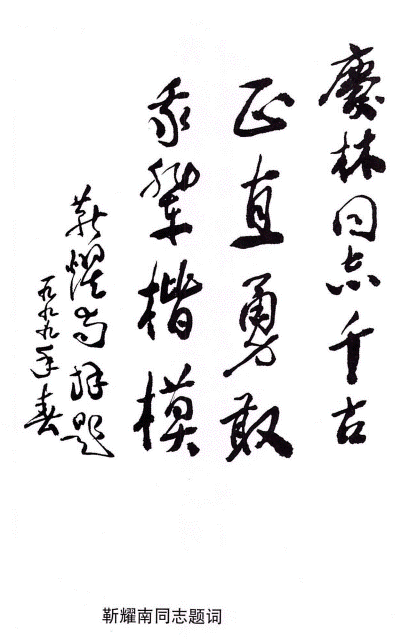 慶林同志千古
正直勇敢
我輩楷模
靳耀南拜题
一九九九年春
靳耀南同志题词